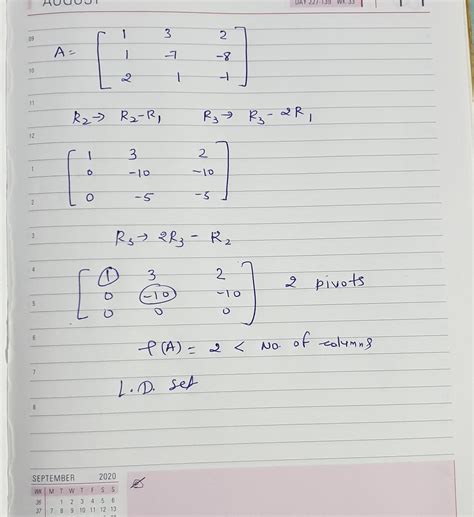 AUGUST
DAY 227-139 WK 33
09
A = [ 1 3 2
1 -7 -8
10
2 1 -1 ]
11
R2 → R2-R1 R3 → R3 - 2R1
12
[ 1 3 2
1
0 -10 -10
2
0 -5 -5 ]
3
R3 → 2R3 - R2
4
[ 1 3 2
0 -10 -10
5
0 0 0 ]
2 pivots
6
ρ(A) = 2 < No. of columns
7
L.D. set
8
SEPTEMBER 2020
WK M T W T F S S
36 1 2 3 4 5 6
37 7 8 9 10 11 12 13